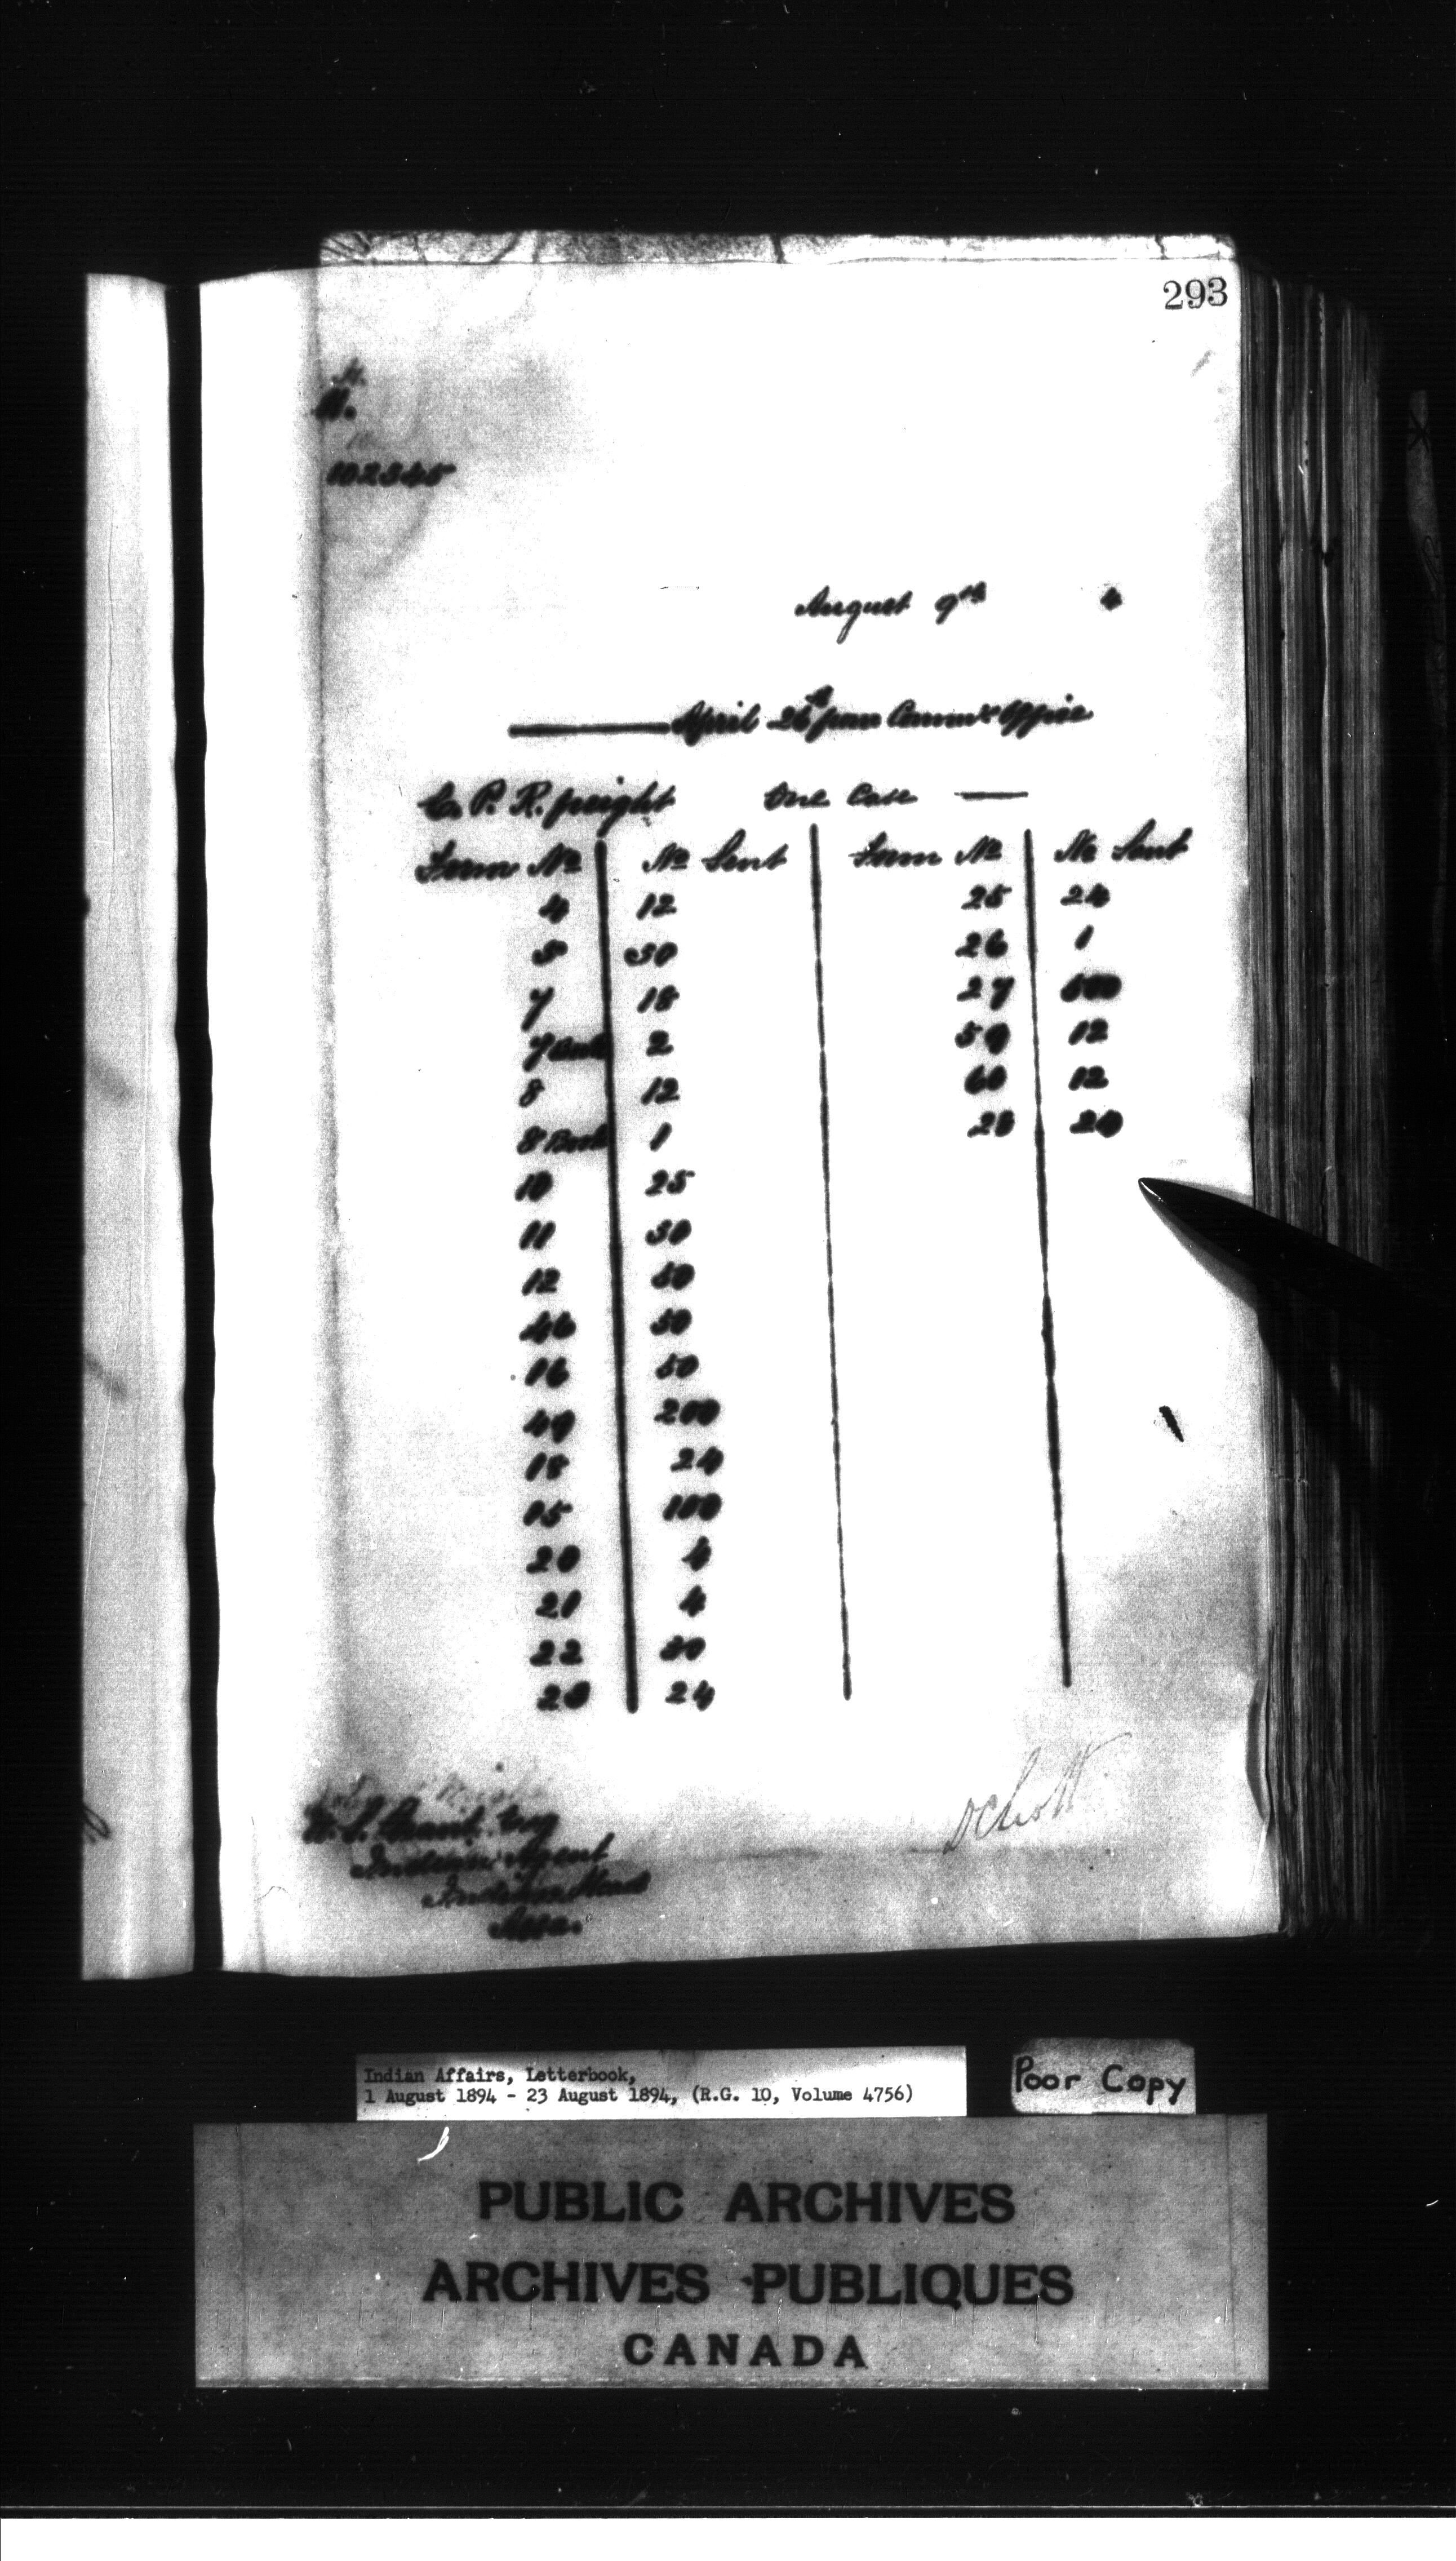 293
H.
102345
August 9th 4
April 26th from Commrs Office
C. P. R. freight One Case
Form No No Sent Form No No Sent
4 12 25 24
5 50 26 1
7 18 27 500
7 Book 2 59 12
8 12 60 12
8 Book 1 28 20
10 25
11 30
12 50
46 50
16 50
49 200
18 24
15 100
20 4
21 4
22 30
24
W. S. Grant Esq
Indian Agent
Indian Head
Assa.
Indian Affairs, Letterbook,
1 August 1894 - 23 August 1894, (R.G. 10, Volume 4756)
Poor Copy
PUBLIC ARCHIVES
ARCHIVES PUBLIQUES
CANADA